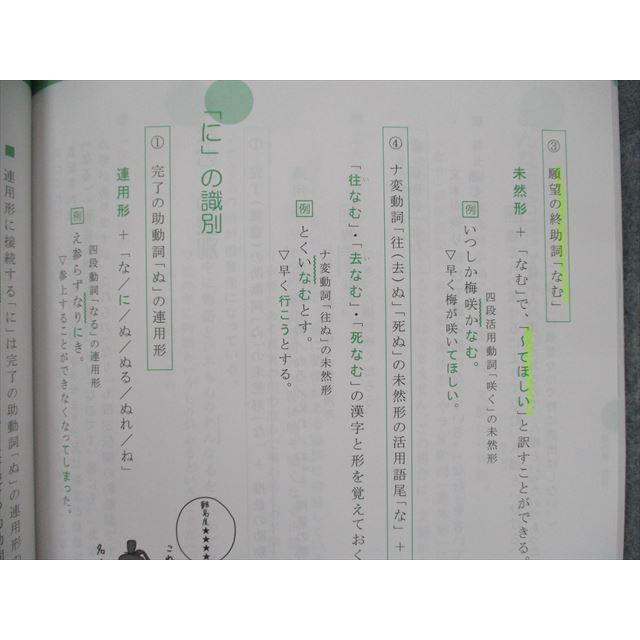 ③ 願望の終助詞「なむ」
未然形 + 「なむ」で、「〜てほしい」と訳すことができる。
例 いつしか梅咲かなむ。
四段活用動詞「咲く」の未然形
▽早く梅が咲いてほしい。
④ ナ変動詞「往(去)ぬ」「死ぬ」の未然形の活用語尾「な」+
「往なむ」・「去なむ」・「死なむ」の漢字と形を覚えておく
例 とくいなむとす。
ナ変動詞「往ぬ」の未然形
▽早く行こうとする。
「に」の識別
① 完了の助動詞「ぬ」の連用形
連用形 + 「な/に/ぬ/ぬる/ぬれ/ね」
例 え参らずなりにき。
四段動詞「なる」の連用形
▽参上することができなくなってしまった。
難易度 ★★★★
■ 連用形に接続する「に」は完了の助動詞「ぬ」の連用形の